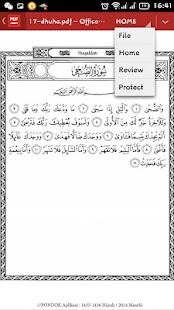 16:41
PDF
17-dhuha.pdf – Office···
HOME
File
Home
Review
Protect
سُورَةُ الضُّحَىٰ
بِسْمِ اللَّهِ الرَّحْمَٰنِ الرَّحِيمِ
وَالضُّحَىٰ ۝ وَاللَّيْلِ إِذَا سَجَىٰ ۝ مَا وَدَّعَكَ رَبُّكَ وَمَا قَلَىٰ ۝
وَلَلْآخِرَةُ خَيْرٌ لَكَ مِنَ الْأُولَىٰ ۝ وَلَسَوْفَ يُعْطِيكَ رَبُّكَ فَتَرْضَىٰ ۝
أَلَمْ يَجِدْكَ يَتِيمًا فَآوَىٰ ۝ وَوَجَدَكَ ضَالًّا فَهَدَىٰ ۝ وَوَجَدَكَ عَائِلًا
فَأَغْنَىٰ ۝ فَأَمَّا الْيَتِيمَ فَلَا تَقْهَرْ ۝ وَأَمَّا السَّائِلَ فَلَا تَنْهَرْ ۝ وَأَمَّا بِنِعْمَةِ
رَبِّكَ فَحَدِّثْ ۝
//PONDOK Aplikasi : 1435-1436 Hijriah / 2014 Masehi